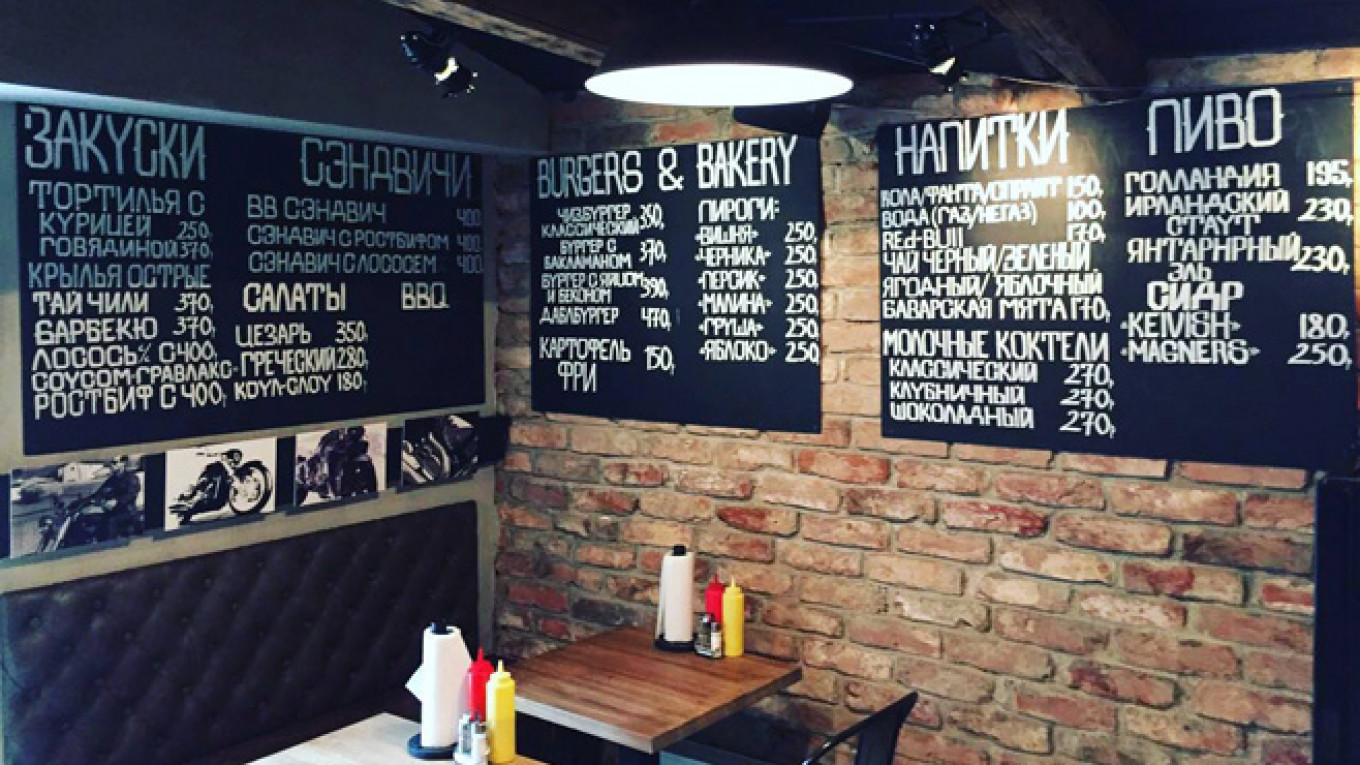 ЗАКУСКИ
ТОРТИЛЬЯ С
КУРИЦЕЙ 250,
ГОВЯДИНОЙ 370,
КРЫЛЬЯ ОСТРЫЕ
ТАЙ ЧИЛИ 370,
БАРБЕКЮ 370,
ЛОСОСЬ% С 400,
СОУСОМ-ГРАВЛАКС-
РОСТБИФ С 400,
СЭНДВИЧИ
BB СЭНДВИЧ 400
СЭНАВИЧ С РОСТБИФОМ 400
СЭНАВИЧ С ЛОСОСЕМ 400
САЛАТЫ BBQ
ЦЕЗАРЬ 350,
ГРЕЧЕСКИЙ 280,
КОУЛ-СЛОУ 180,
BURGERS & BAKERY
ЧИЗБУРГЕР 350,
КЛАССИЧЕСКИЙ
БУРГЕР С 370,
БАКЛАМАНОМ
БУРГЕР С ЯЙЦОМ 390,
И БЕКОНОМ
ДАБЛБУРГЕР 470,
КАРТОФЕЛЬ 150,
ФРИ
ПИРОГИ:
«ВИШНЯ» 250,
«ЧЕРНИКА» 250,
«ПЕРСИК» 250,
«МАЛИНА» 250,
«ГРУША» 250,
«ЯБЛОКО» 250,
НАПИТКИ
КОЛА/ФАНТА/СПРАЙТ 150,
ВОДА (ГАЗ/НЕГАЗ) 100,
REd-BUll 170,
ЧАЙ ЧЕРНЫЙ/ЗЕЛЕНЫЙ
ЯГОДНЫЙ/ ЯБЛОЧНЫЙ
БАВАРСКАЯ МЯТА 170,
МОЛОЧНЫЕ КОКТЕЛИ
КЛАССИЧЕСКИЙ 270,
КЛУБНИЧНЫЙ 270,
ШОКОЛАДНЫЙ 270,
ПИВО
ГОЛЛАНДИЯ 195,
ИРЛАНДСКИЙ 230,
СТАУТ
ЯНТАРНРНЫЙ 230,
ЭЛЬ
СИДР
«KEIVISH» 180,
«MAGNERS» 250,